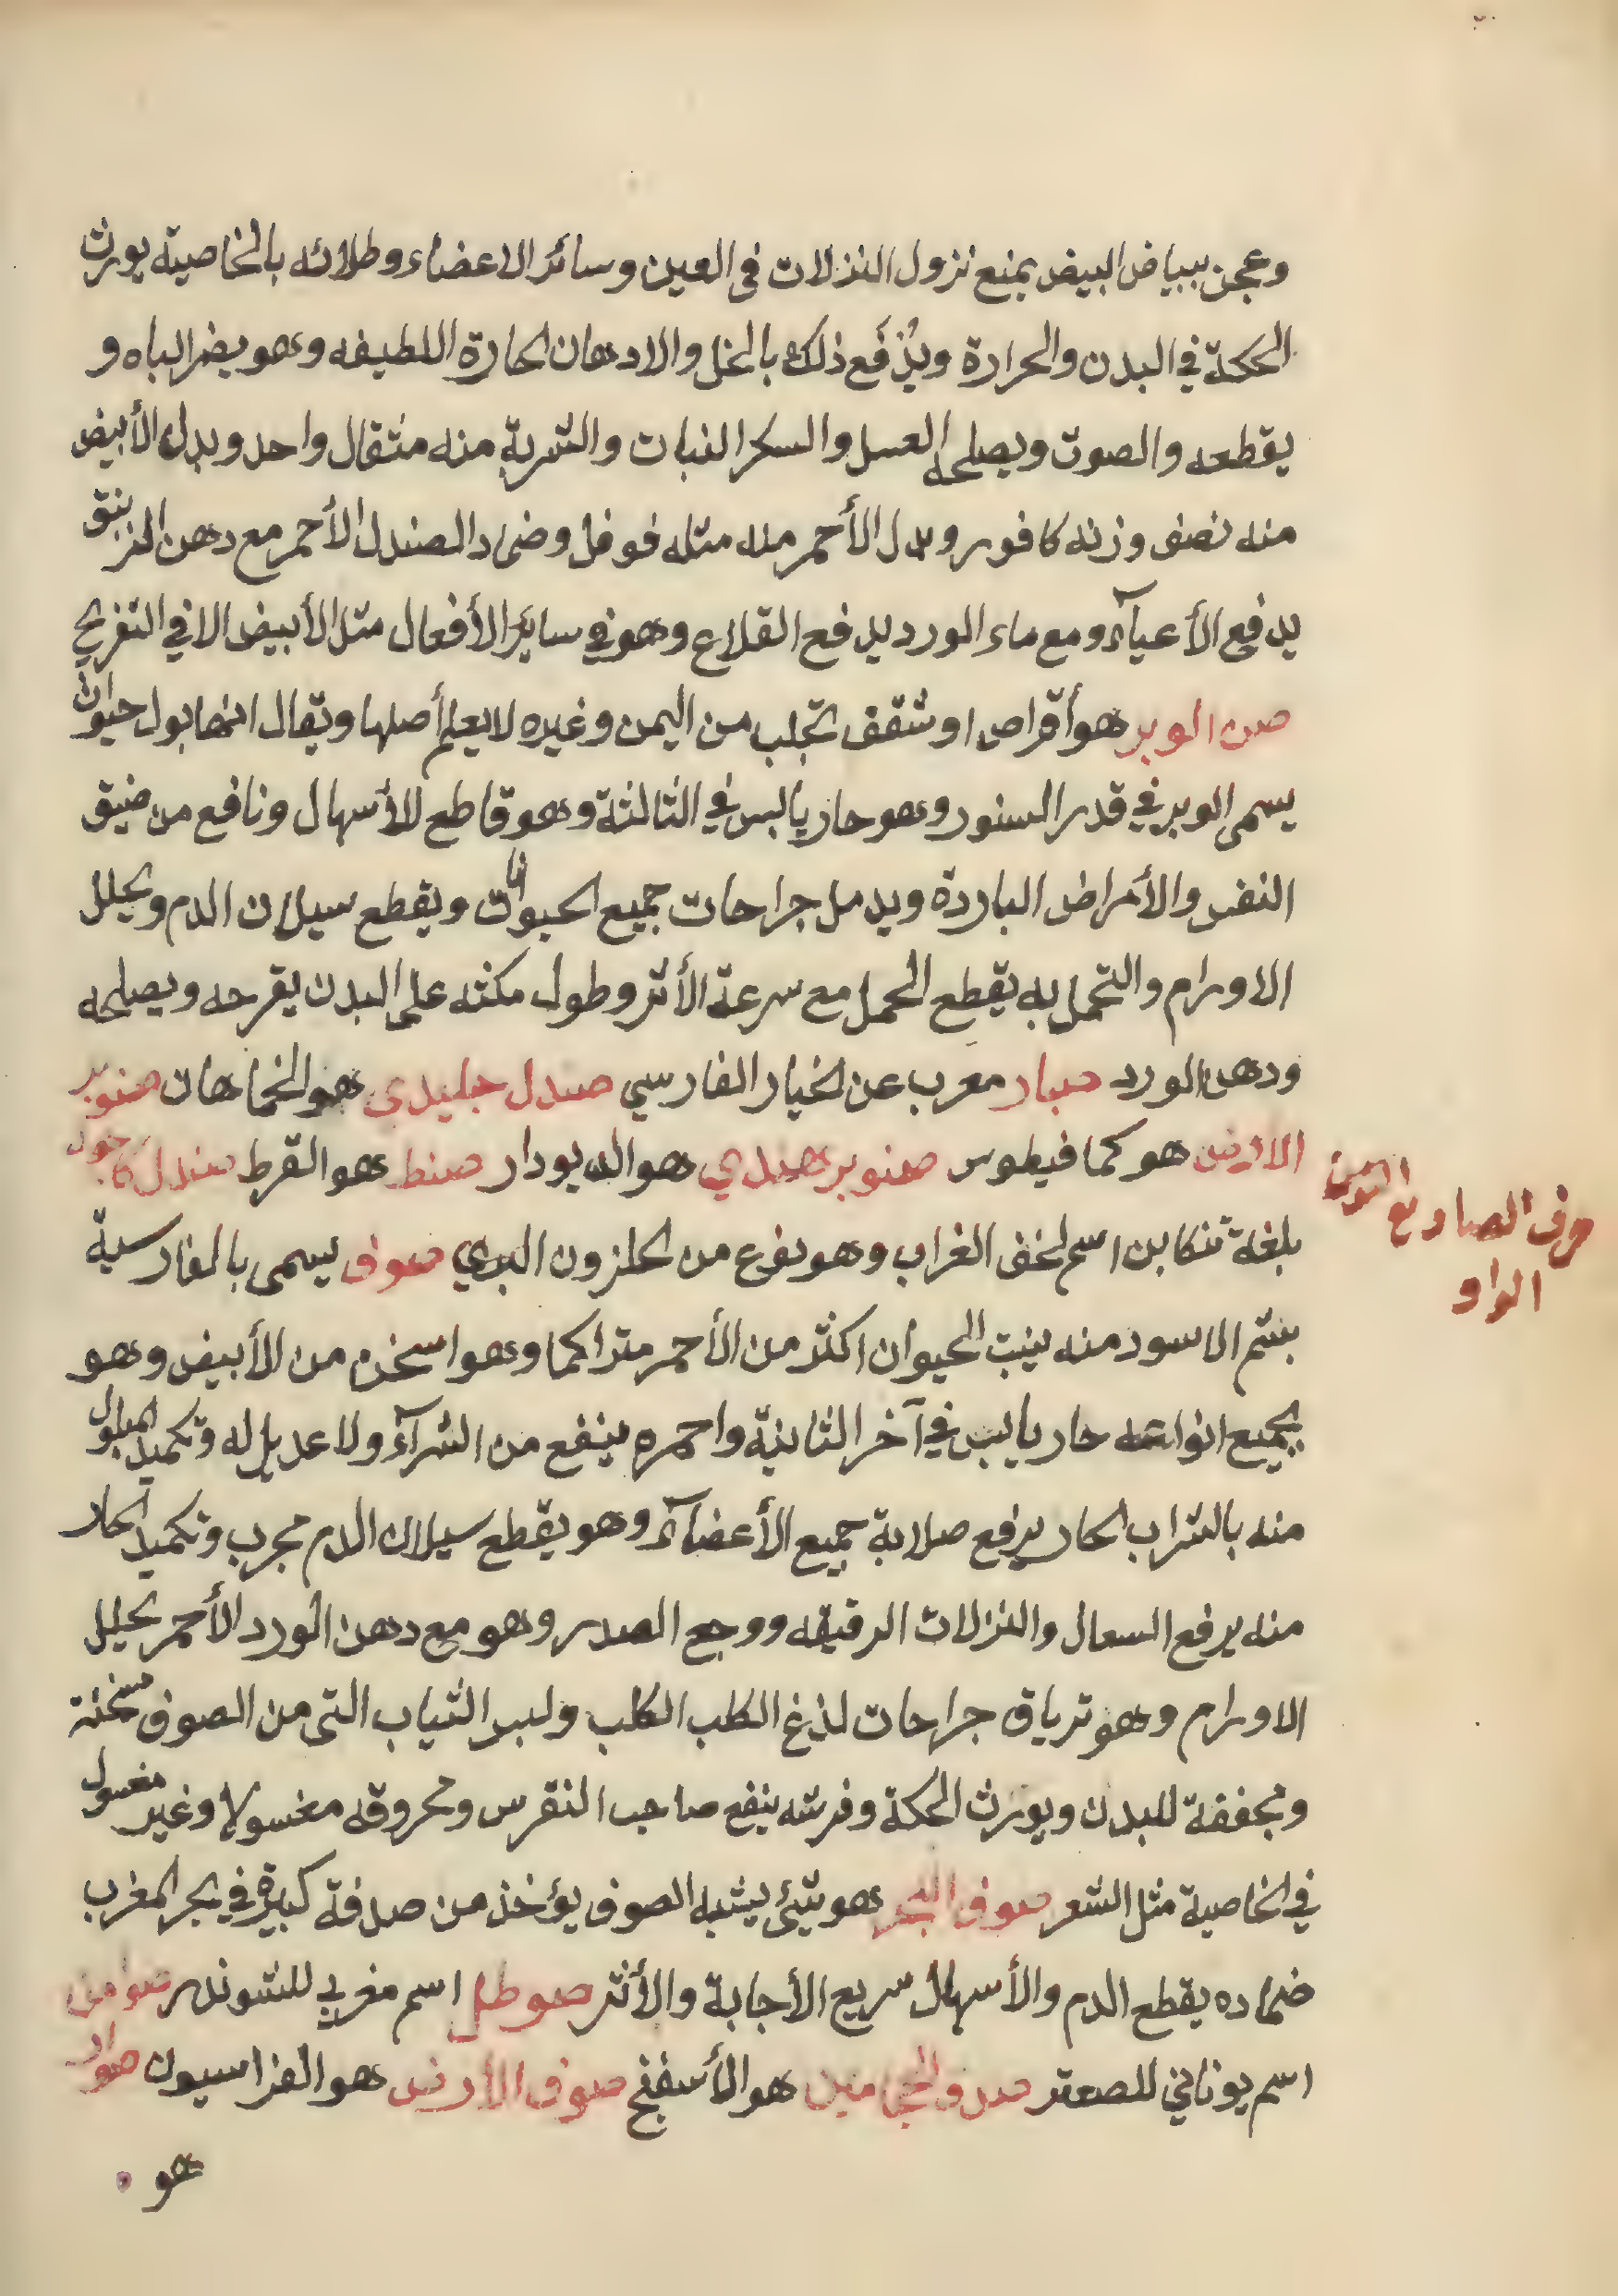 وعجن ببياض البيض يمنع نزول النزلات فى العين وسائر الاعضاء وطلائه بالخاصية يورث
الحكة في البدن والحرارة ويُدْفَع ذلك بالخل والادهان الحارة اللطيفه وهو يضر الباه و
يقطعه والصوت ويصلحه العسل والسكر النبات والشربة منه مثقال واحد وبدل الأبيض
منه نصف وزنه كافور وبدل الأحمر منه مثله فوفل وضماد الصندل الأحمر مع دهن الزنبق
يدفع الأعيآء ومع ماء الورد يدفع القلاع وهو في سايرُ الأفعال مثل الأبيض الا في التفريح
صن الوبر هو أقراص او شقف تجلب من اليمن وغيره لا يعلم أصلها ويقال انها بول حيوان
يسمى الوبر في قدر السنور وهو حار يابس في الثالثة وهو قاطع للأسهال ونافع من ضيق
النفس والأمراض الباردة ويدمل جراحات جميع الحيوانات ويقطع سيلان الدم ويحلل
الاورام والتحمل به يقطع الحمل مع سرعة الأثر وطول مكثه على البدن يقرحه ويصلحه
ودهن الورد صبار معرب عن الخيار الفارسي صندل جليدى هو الخماهان صنوبر
الارض هو كما فيطوس صنوبر هندي هو الديودار صنط هو القرط صندل
بلغة تنكابن اسم لخف الغراب وهو نوع من الحلزون البري صوف يسمى بالفارسية
بشم الاسود منه ينبت الحيوان اكثر من الأحمر متراكما وهو اسخن من الأبيض وهو
بجميع انواعه حار يابس في آخر الثانية واحمره ينفع من الشرآء ولا عديل له وتكميد المبلول
منه بالشراب الحار يرفع صلابة جميع الأعضآء وهو يقطع سيلان الدم مجرب وتكميد الحار
منه يرفع السعال والنزلات الرقيقه ووجع الصدر وهو مع دهن الورد الأحمر يحلل
الاورام وهو ترياق جراحات لذغ الكلب الكلب ولبس الثياب التى من الصوف مسخنة
ومجففة للبدن ويورث الحكة وفرشه ينفع صاحب النقرس ومحروقه مغسولا وغير مغسول
في الخاصية مثل الشعر صوف البحر هو شئ يشبه الصوف يؤخذ من صدفة كبيرة في بحر المغرب
ضماده يقطع الدم والأسهال سريع الأجابة والأثر صوطل اسم مغربي للشوندر صوامن
اسم يوناني للصعتر هو الأسفنج صوف الأرض هو الفراسيون صوار
هو
حرف الصاد مع النون
الواو